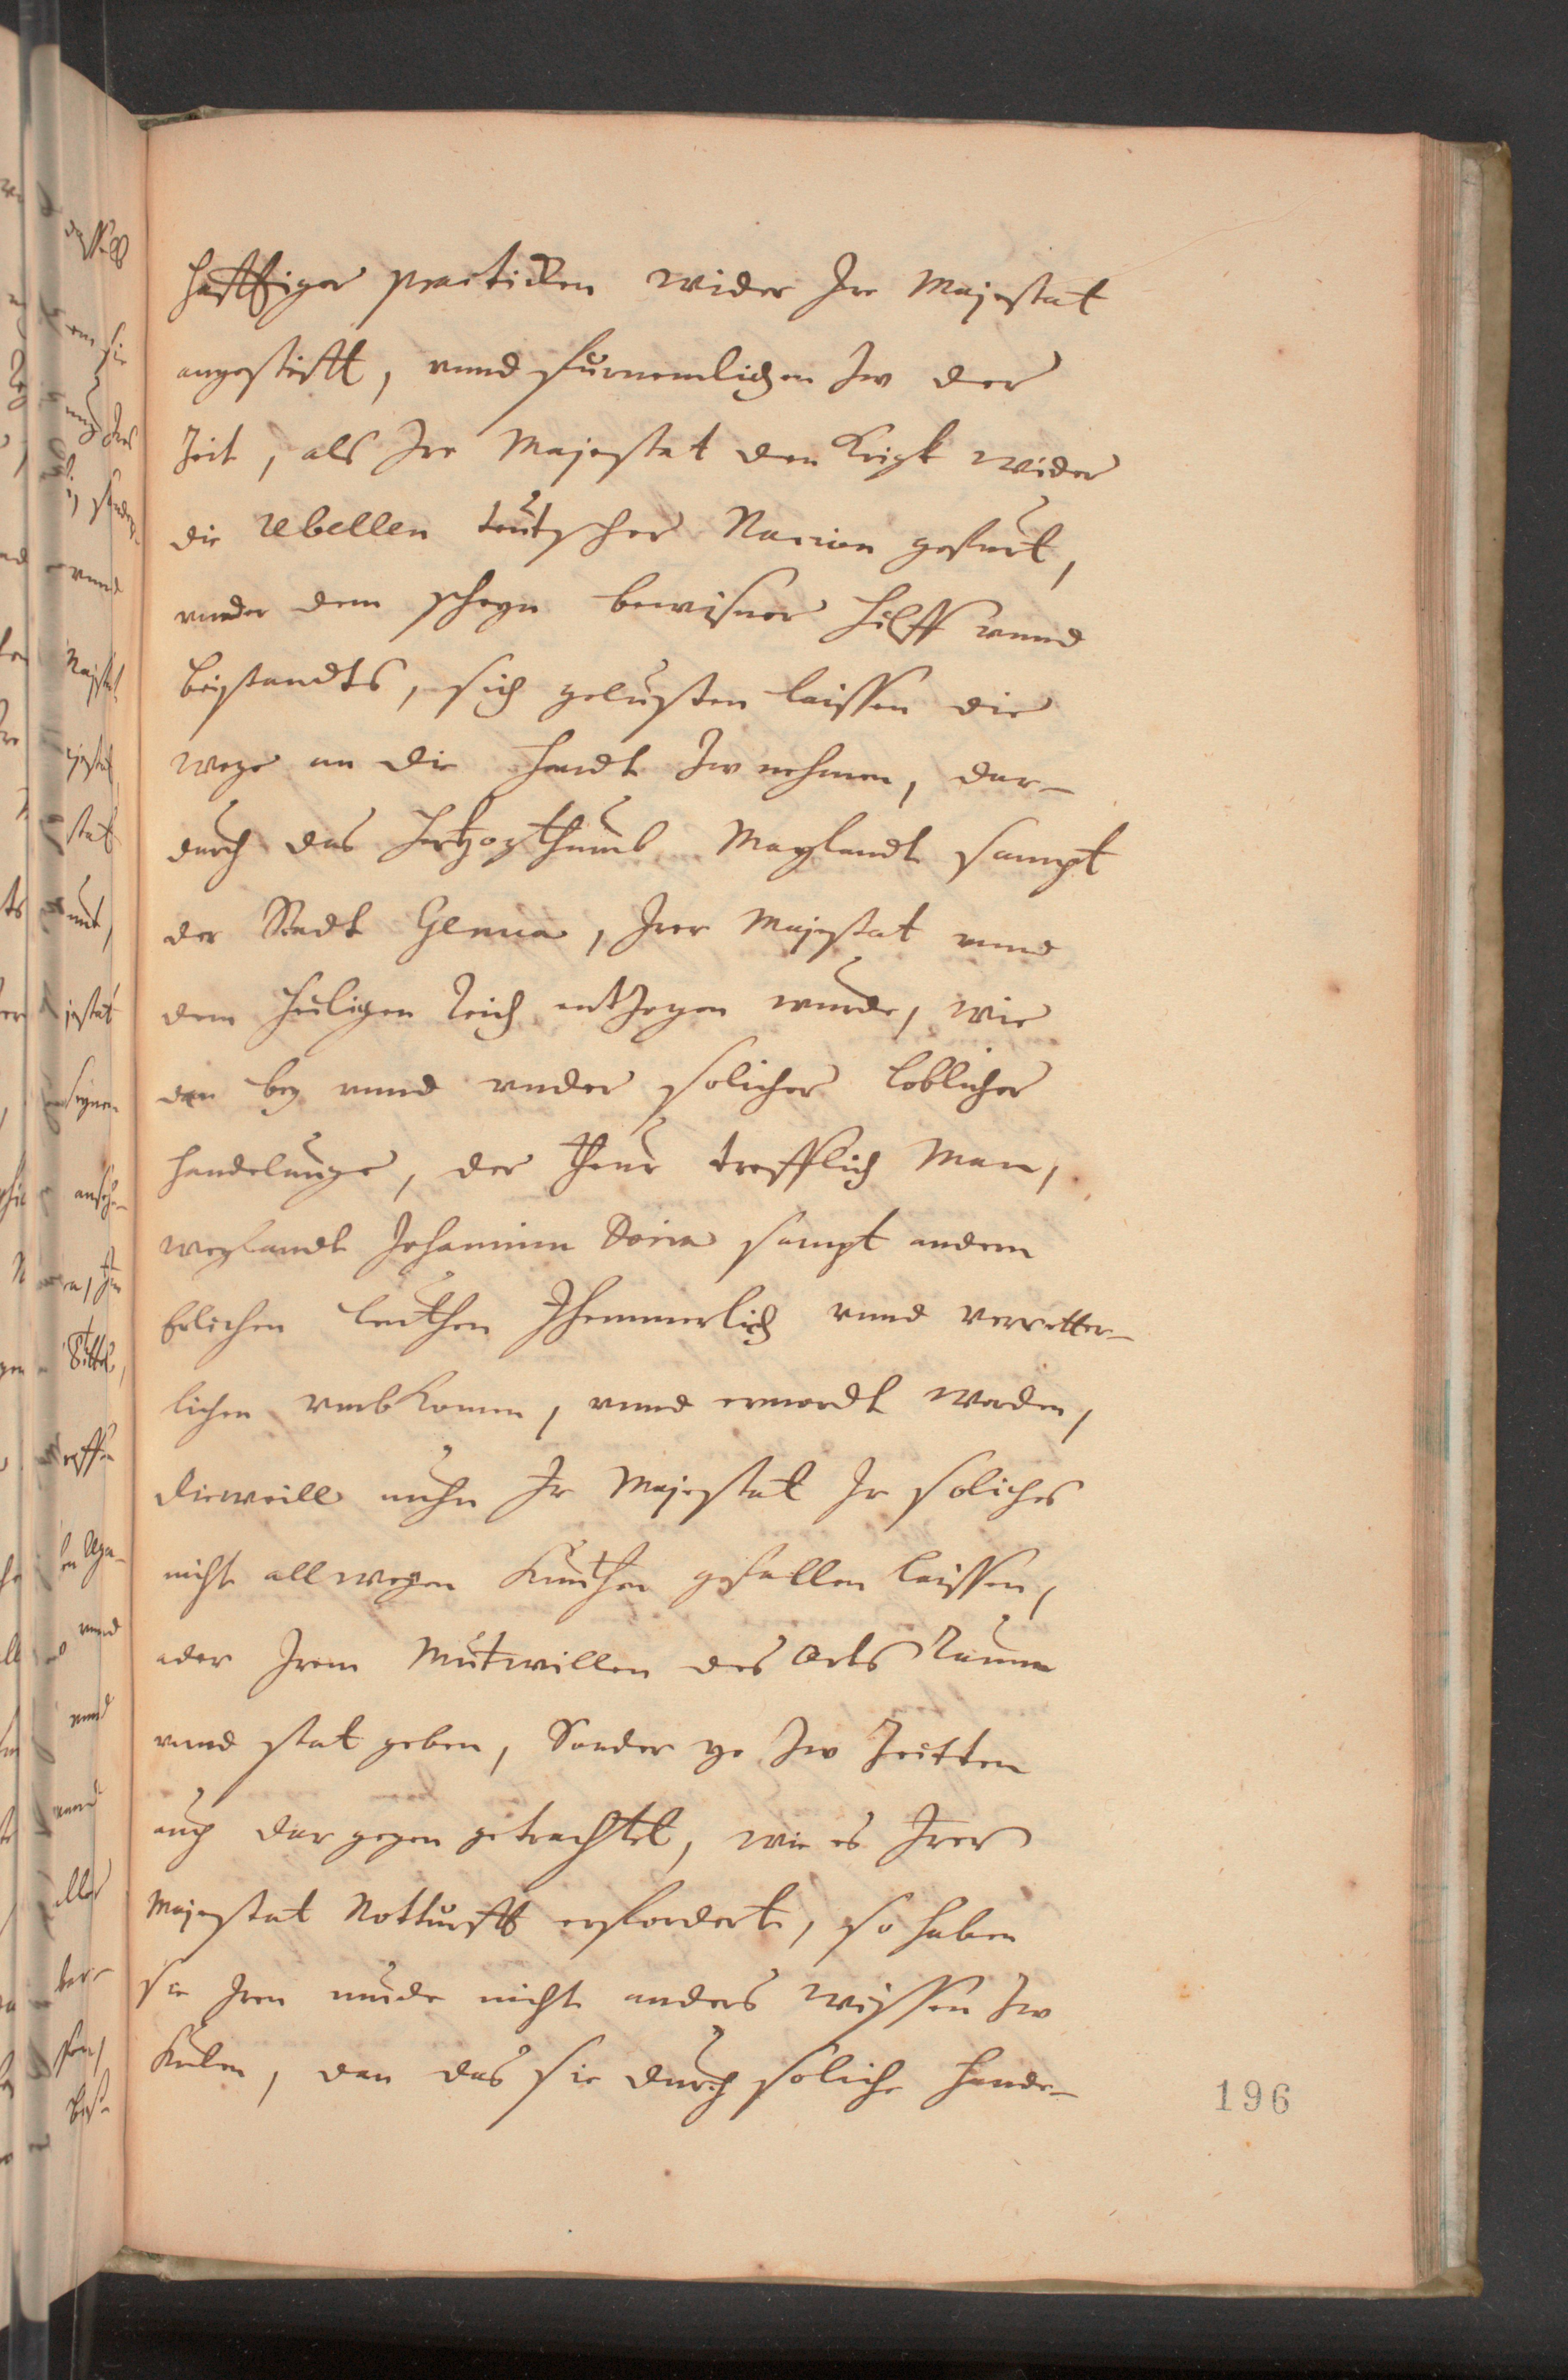 hafftiger practicken wider Ire Majestat
angestifft, vnnd furnemlichen Zw der
Zeit, als Ire Majestat den Krigk wider
die Rebellen teutscher Nacion gefurt,
vnnder dem scheyn bewisner hilff vnnd
beistandts, sich gelusten laissen die
wege an die handt Zw nehmen, dar-
durch das Hertzogthumb Maylandt sampt
der Stadt Genua, Irer Majestat vnnd
dem heiligen Reich entzogen wurde, wie
dan bey vnnd vnder solicher loblicher
handelunge, der theur trefflich Man,
weylandt Johannin Doria sampt andern
Erlichen leuthen Jhemmerlich vnnd verretter-
lichen vmbkomen, vnnd ermordt worden,
dieweill nuhn Ir Majestat Ir soliches
nicht allwegen kunthen gefallen laissen,
oder Irem Mutwillen des Orts Raumm
vnnd stat geben, Sonder ye Zw Zeitten
auch dar gegen getrachtet, wie es Irer
Majestat Notturfft erfordert, so haben
sie Iren mude nicht anders wissen Zw
kulen, dan das sie durch soliche hande-
196